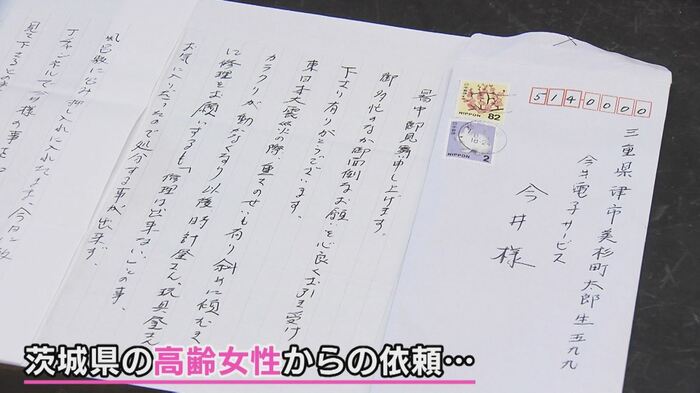 見て下さるとの
丁チャンネルで今井様の事を
風呂敷に包み、押し入れに入れたまま、今日に致
お気に入りだったので処分する事が出来ず、
に修理をお願いするも「修理は出来ない」との事、
カラクリが動かなくなり以後時計屋さん、玩具屋さん
東日本大震災の際、重さのせいも有り斜めに傾むき
下さり有りがとうございます。
御多忙のなか御面倒なお願いを心良くお引き受け
暑中御見舞申し上げます。
三重県津市美杉町太郎生五九九
今井電子サービス
今井様
5140000
NIPPON 82
NIPPON 2
茨城県の高齢女性からの依頼…